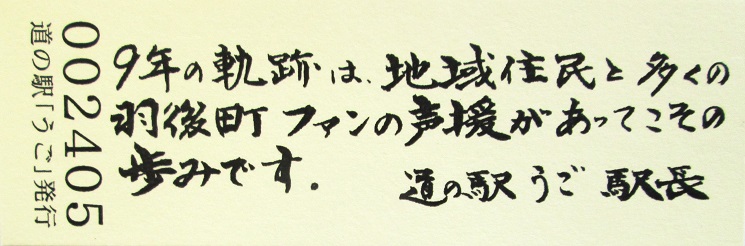 002405
道の駅「うご」発行
9年の軌跡は、地域住民と多くの
羽後町ファンの声援があってこその
歩みです.
道の駅うご 駅長